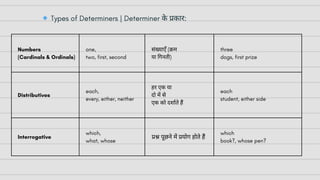 Types of Determiners | Determiner के प्रकार:
Numbers
(Cardinals & Ordinals)
one,
two, first, second
संख्याएँ (क्रम
या गिनती)
three
dogs, first prize
Distributives
each,
every, either, neither
हर एक या
दो में से
एक को दर्शाते हैं
each
student, either side
Interrogative
which,
what, whose
प्रश्न पूछने में प्रयोग होते हैं
which
book?, whose pen?